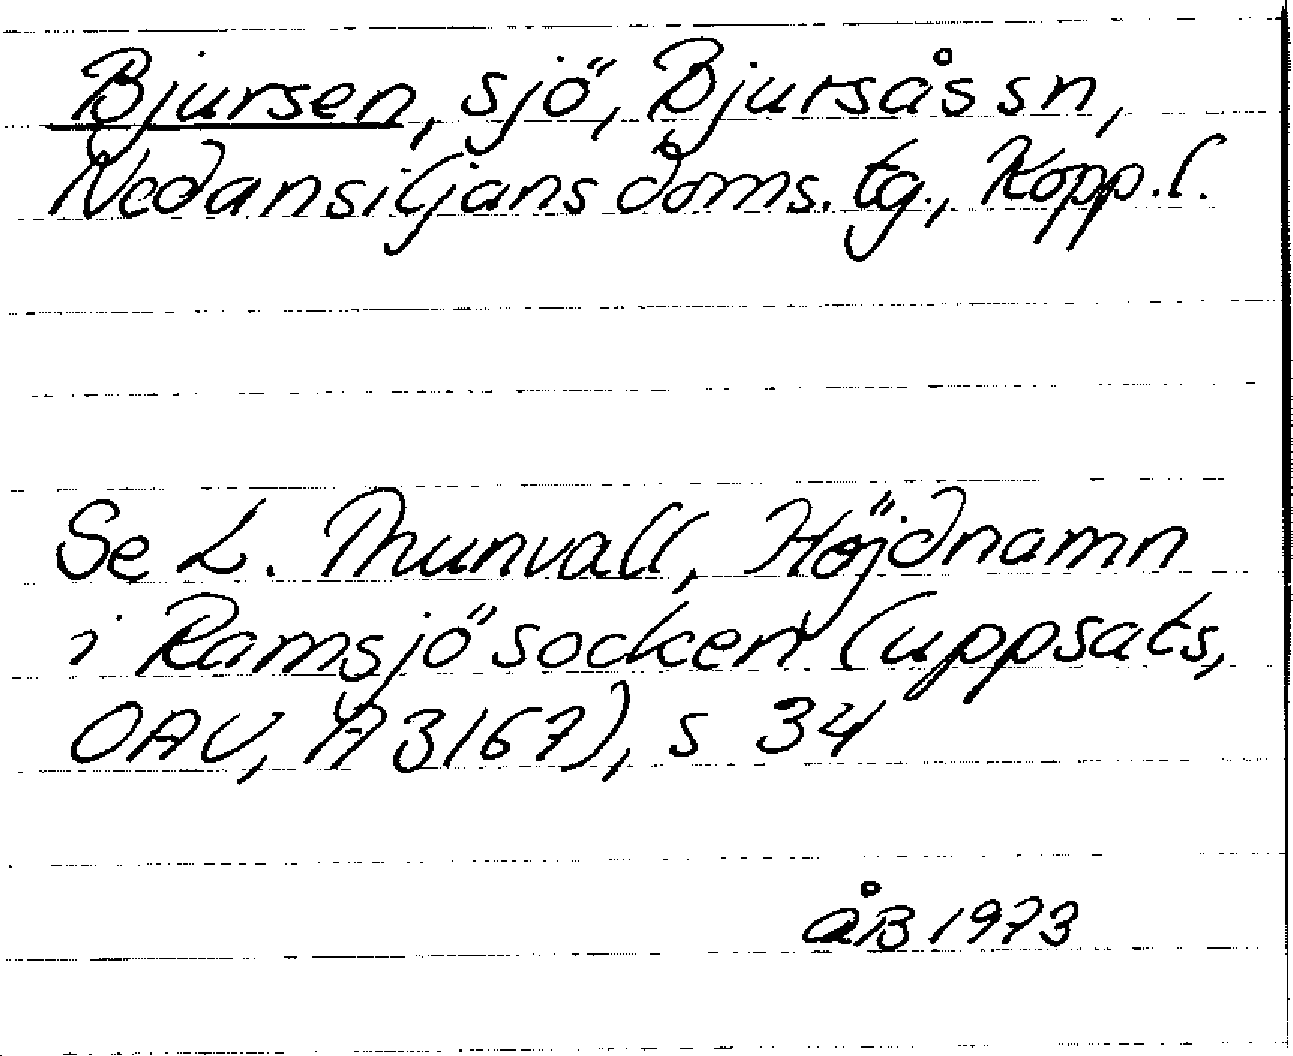 Bjursen, sjö, Bjursås sn,
Nedansiljans doms. tg., Kopp. l.
Se L. Thunvall, Höjdnamn
i Ramsjö socken (uppsats,
OAU, A 3167), s 34
ÅB 1973